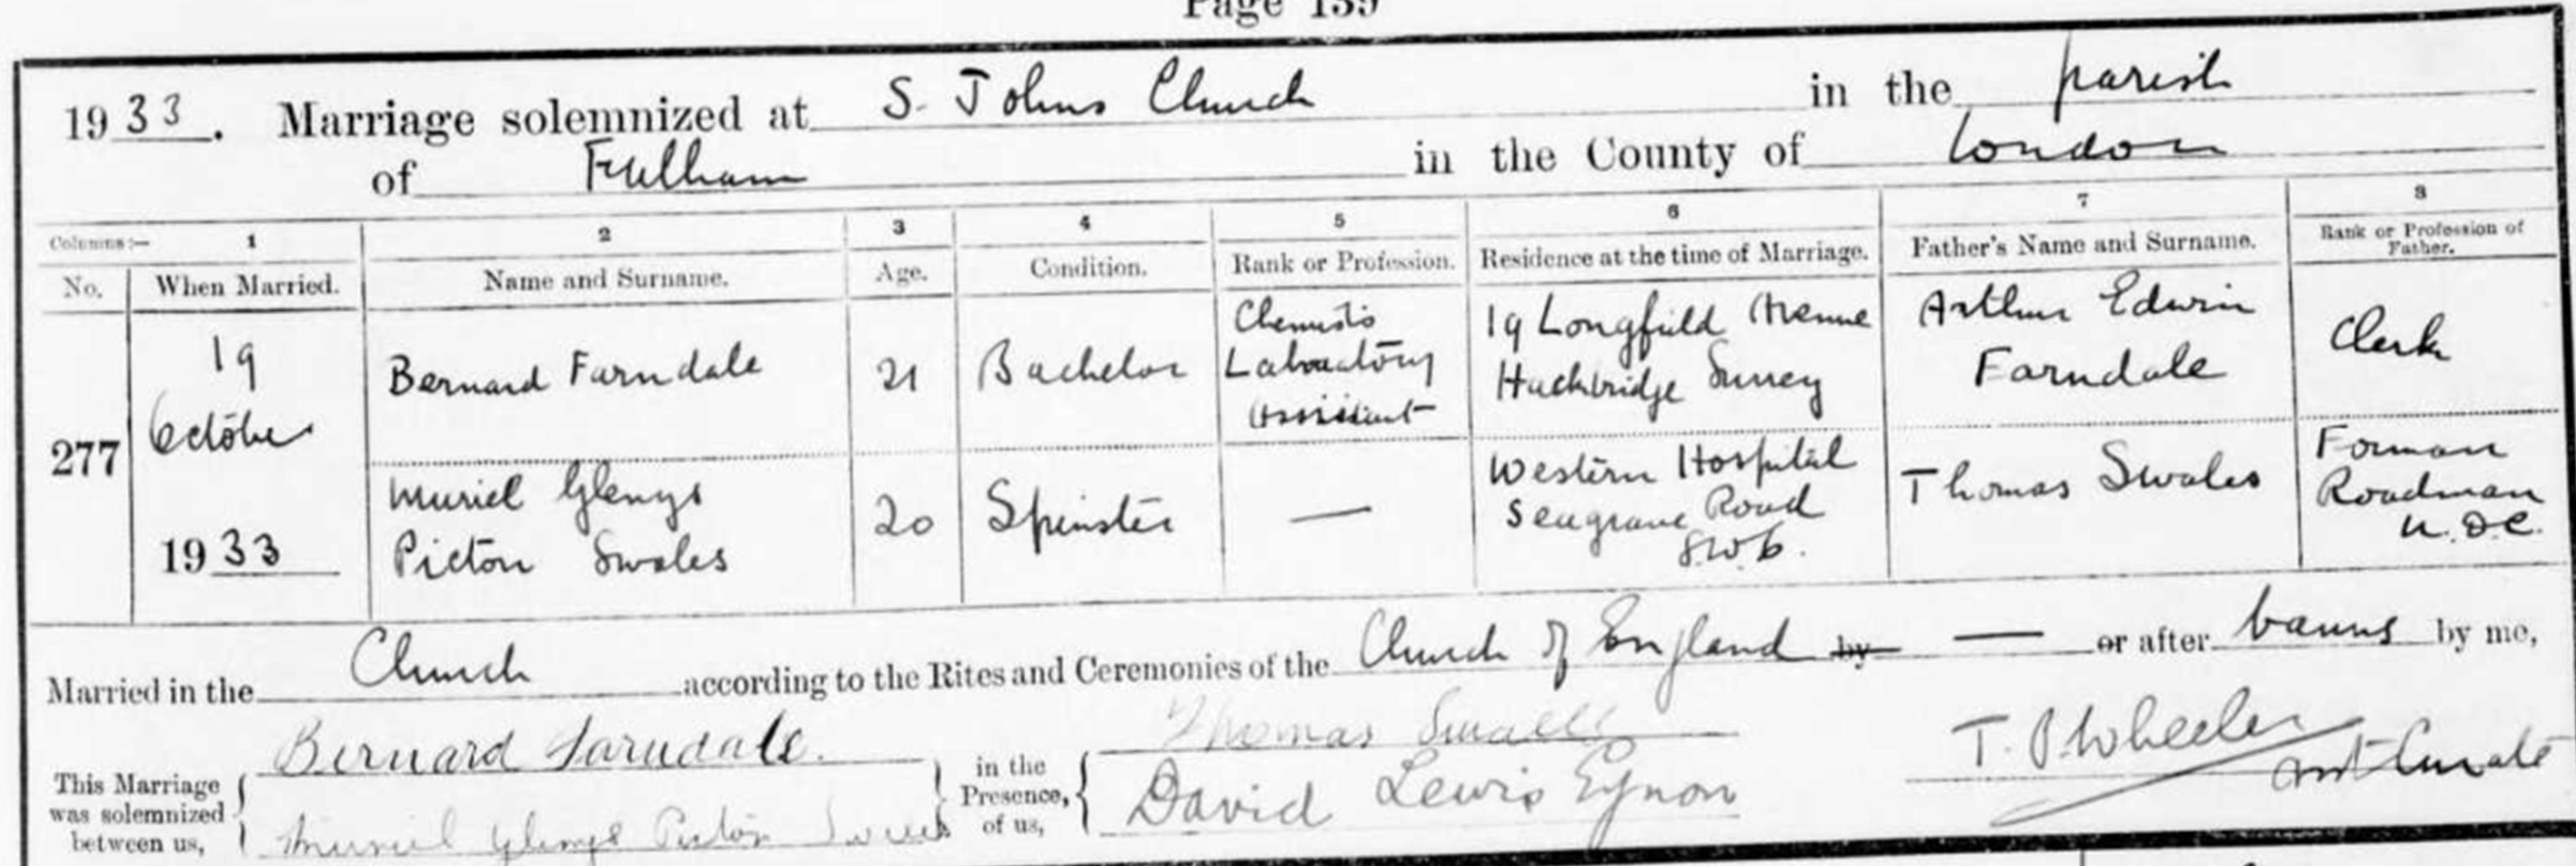 Page 139
1933. Marriage solemnized at S. Johns Church in the parish
of Fulham in the County of London
Columns:— 1 2 3 4 5 6 7 8
No. When Married. Name and Surname. Age. Condition. Rank or Profession. Residence at the time of Marriage. Father's Name and Surname. Rank or Profession of Father.
277
19
October
1933
Bernard Farndale
21
Bachelor
Chemists
Laboratory
Assistant
19 Longfield Avenue
Hackbridge Surrey
Arthur Edwin
Farndale
Clerk
Muriel Glenys
Picton Swales
20
Spinster
—
Western Hospital
Seagrave Road
S.W.6.
Thomas Swales
Forman
Roadman
U.D.C.
Married in the Church according to the Rites and Ceremonies of the Church of England by — or after banns by me,
This Marriage was solemnized between us,
Bernard Farndale.
Muriel Glenys Picton Swales
in the Presence of us,
Thomas
David Lewis Eynon
T. P. Wheeler
Asst Curate